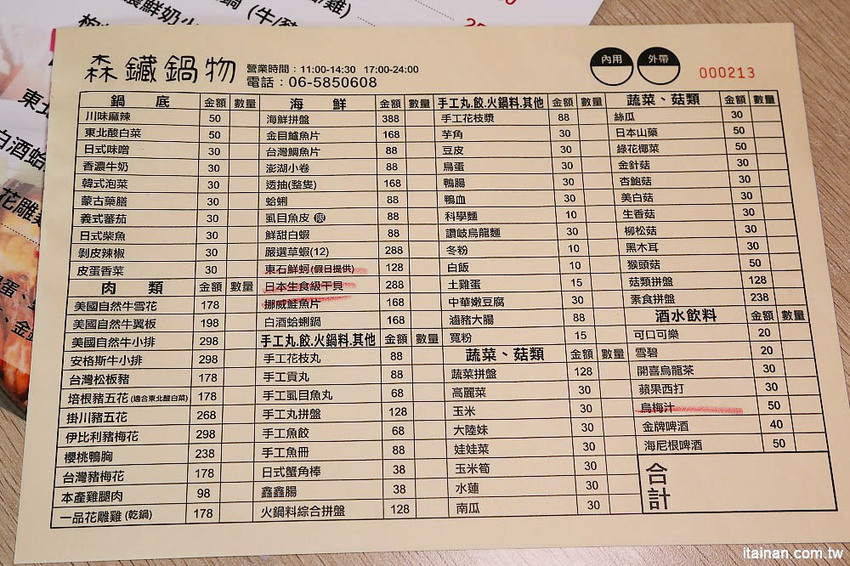 森鐵鍋物
營業時間：11:00-14:30 17:00-24:00
電話：06-5850608
內用
外帶
000213
鍋底 金額 數量
川味麻辣 50
東北酸白菜 50
日式味噌 30
香濃牛奶 30
韓式泡菜 30
蒙古藥膳 30
義式蕃茄 30
日式柴魚 30
剝皮辣椒 30
皮蛋香菜 30
肉類 金額 數量
美國自然牛雪花 178
美國自然牛翼板 198
美國自然牛小排 298
安格斯牛小排 298
台灣松板豬 178
培根豬五花(適合東北酸白菜) 178
掛川豬五花 268
伊比利豬梅花 298
櫻桃鴨胸 238
台灣豬梅花 178
本產雞腿肉 98
一品花雕雞(乾鍋) 178
海鮮 金額 數量
海鮮拼盤 388
金目鱸魚片 168
台灣鯛魚片 88
澎湖小卷 88
透抽(整隻) 168
蛤蜊 88
虱目魚皮 限 88
鮮甜白蝦 88
嚴選草蝦(12) 288
東石鮮蚵(假日提供) 128
日本生食級干貝 288
挪威鮭魚片 168
白酒蛤蜊鍋 168
手工丸.餃.火鍋料.其他 金額 數量
手工花枝丸 88
手工貢丸 88
手工虱目魚丸 68
手工丸拼盤 128
手工魚餃 68
手工魚冊 88
日式蟹角棒 38
鑫鑫腸 38
火鍋料綜合拼盤 128
手工丸.餃.火鍋料.其他 金額 數量
手工花枝漿 88
芋角 30
豆皮 30
鳥蛋 30
鴨腸 30
鴨血 30
科學麵 10
讚岐烏龍麵 30
冬粉 10
白飯 10
土雞蛋 15
中華嫩豆腐 30
滷豬大腸 88
寬粉 15
蔬菜、菇類 金額 數量
蔬菜拼盤 128
高麗菜 30
玉米 30
大陸妹 30
娃娃菜 30
玉米筍 30
水蓮 30
南瓜 30
蔬菜、菇類 金額 數量
絲瓜 30
日本山藥 50
綠花椰菜 50
金針菇 30
杏鮑菇 30
美白菇 30
生香菇 30
柳松菇 30
黑木耳 30
猴頭菇 50
菇類拼盤 128
素食拼盤 238
酒水飲料 金額 數量
可口可樂 20
雪碧 20
開喜烏龍茶 30
蘋果西打 30
烏梅汁 50
金牌啤酒 40
海尼根啤酒 50
合計
itainan.com.tw